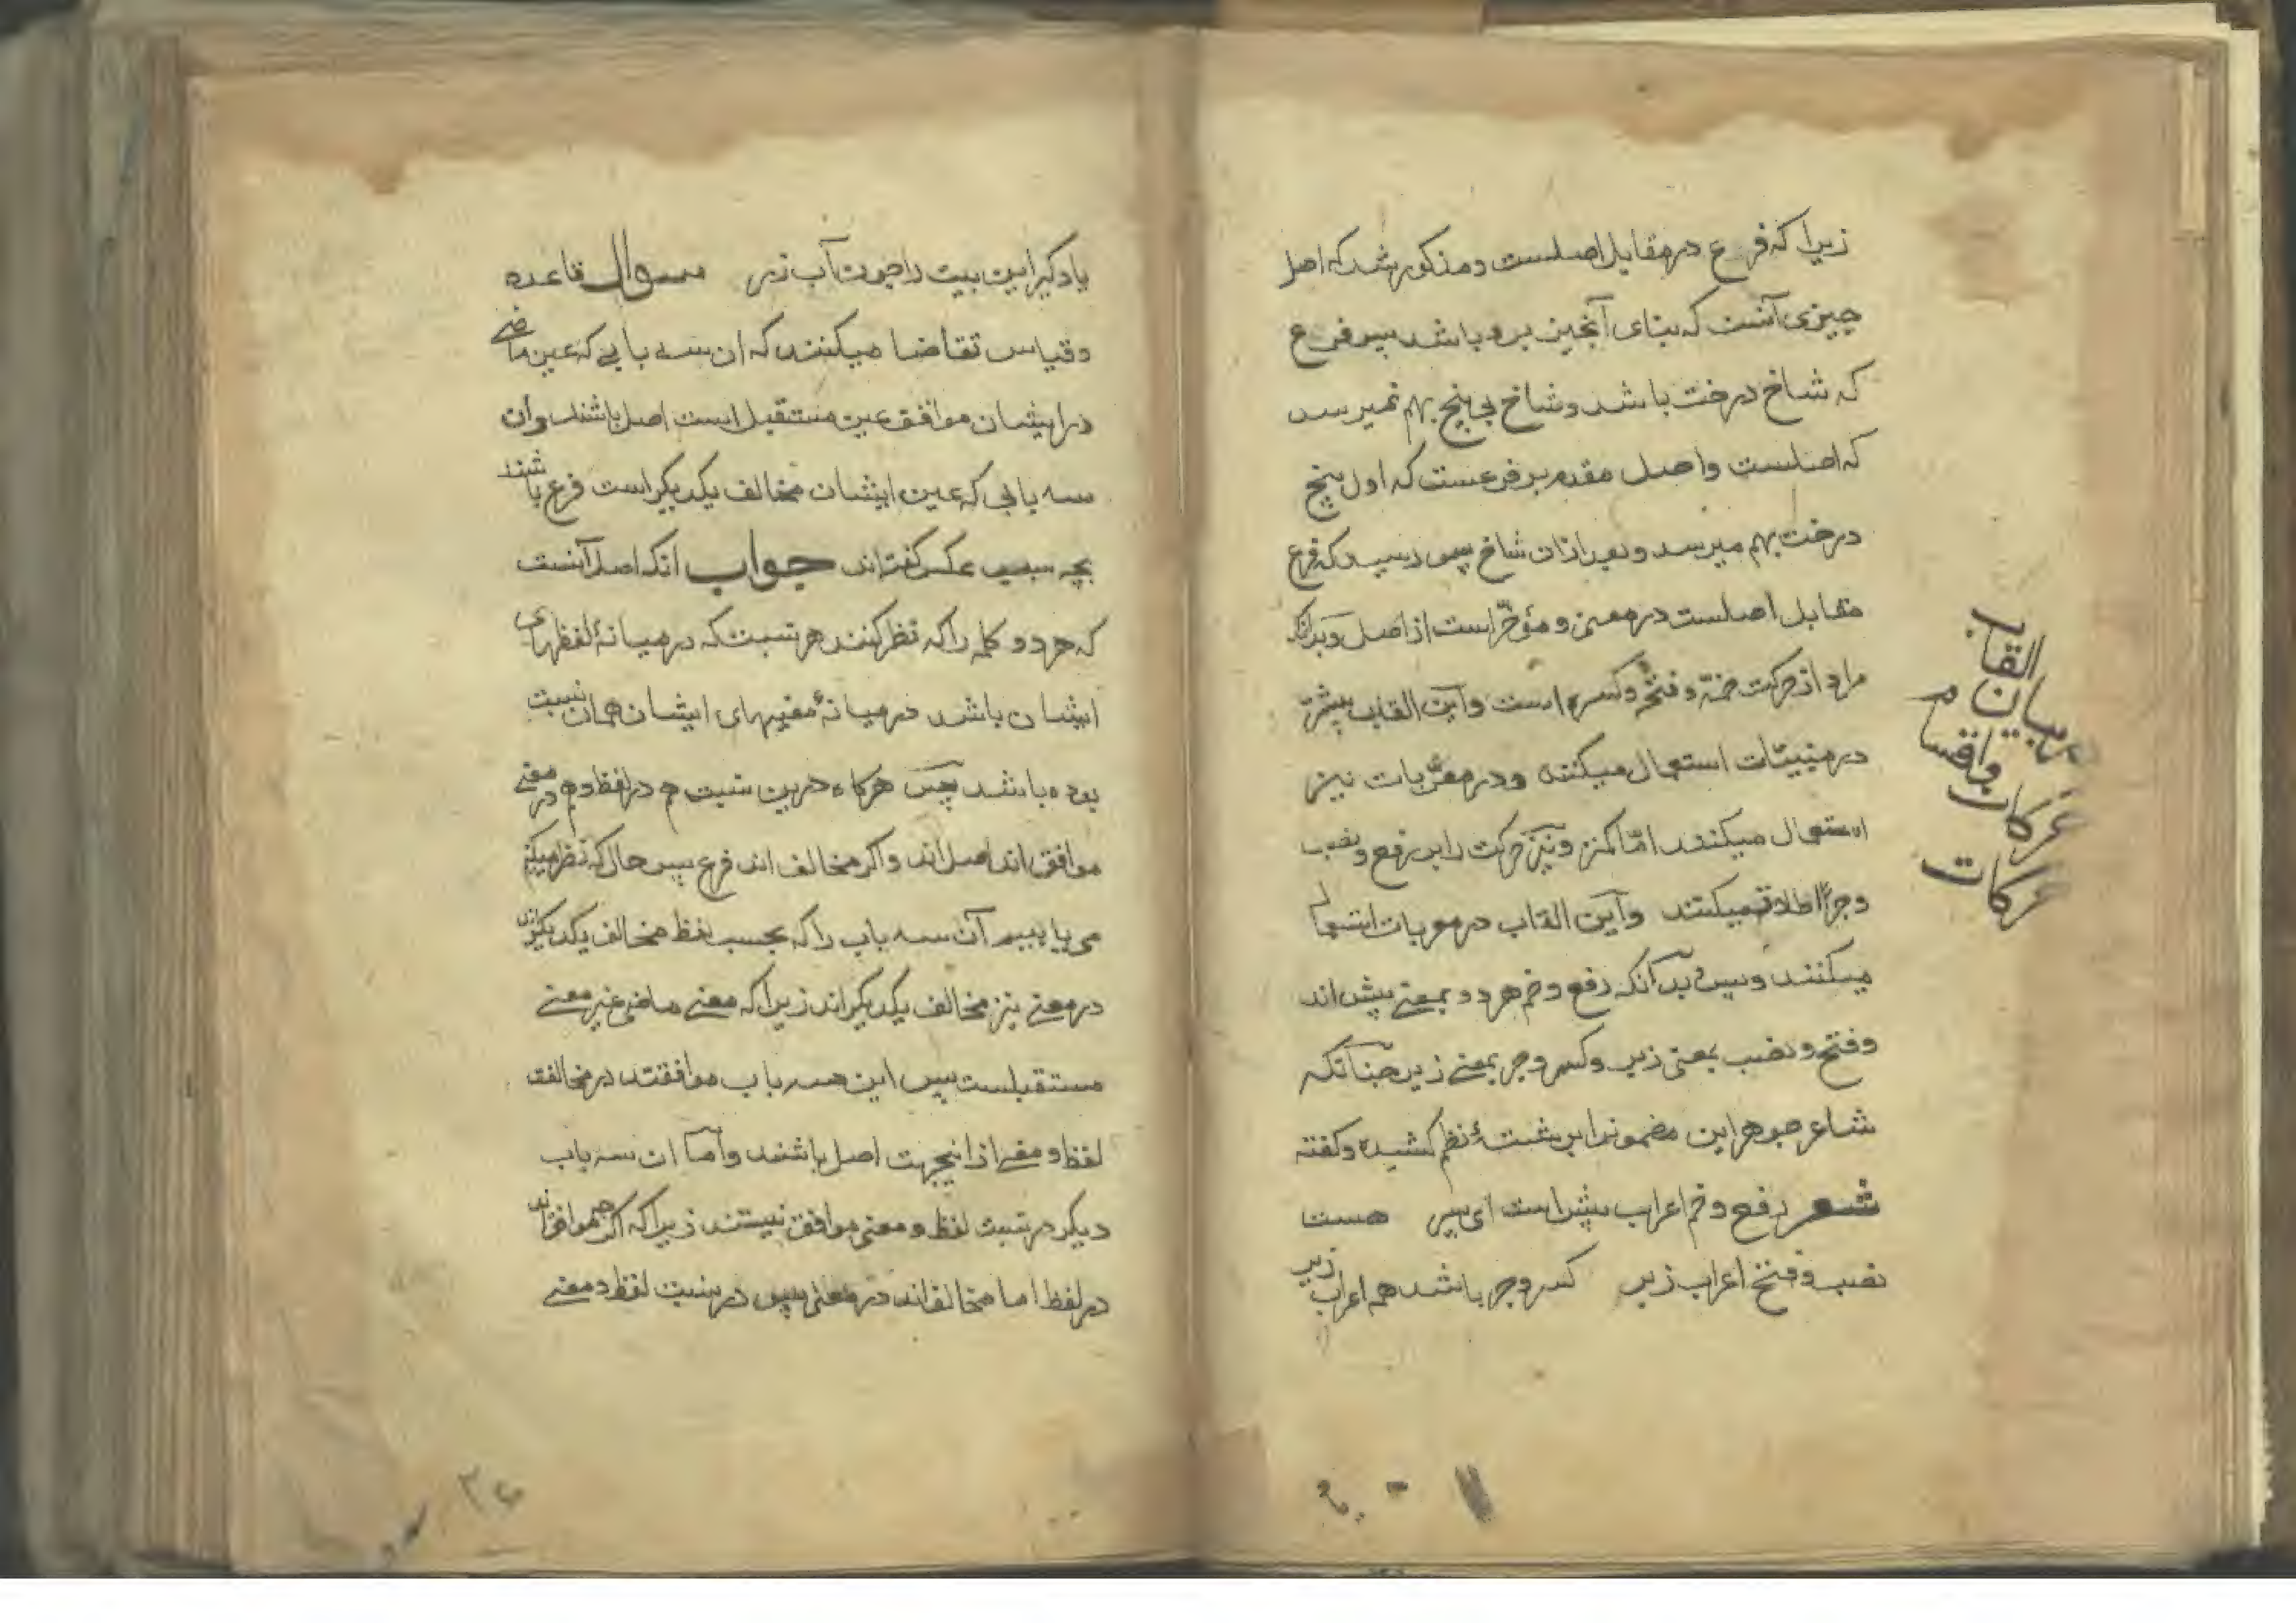 زیرا که فرع در مقابل اصلست و مذکور شد که اصل
چیزی آنست که بنای آنچیز برو باشد پس فرع
که شاخ درخت باشد و شاخ بی بیخ بهم نمیرسد
که اصلست و اصل مقدم بر فرعست که اول بیخ
درخت بهم میرسد و بعد ازان شاخ پس رسید که فرع
مقابل اصلست در معنی و مؤخّر است از اصل و بدانکه
مراد از حرکت ضمّه و فتحه و کسره است و این القاب بیشتر
در مبنیّات استعمال میکنند و در معربات نیز
استعمال میکنند امّا کمتر و نیز حرکت را بر رفع و نصب
و جرّ اطلاق میکنند و این القاب در معربات استعمال
میکنند و بس بدآنکه رفع و ضم هر دو بمعنی پیش اند
و فتح و نصب بمعنی زبر و کسر و جر بمعنی زیر چنانکه
شاعر جوهر این مضمونرا برشتهٔ نظم کشیده و گفته
شعر رفع و ضم اعراب پیش است ای پسر هست
نصب و فتح اعراب زبر کسر و جر باشد هم اعراب زیر
القاب
بیان
واقسام
حرکات
حرکات
یاد کیر این بیت را چون آب زر سوال قاعده
و قیاس تقاضا میکنند که ان سه بابی که عین ماضی
در ایشان موافق عین مستقبل است اصل باشند وان
سه بابی که عین ایشان مخالف یکدیکر است فرع باشند
بچه سبب عکس گفته‌اند جواب انکه اصل آنست
که هر دو کلمه را که نظر کنند هر نسبت که در میانهٔ لفظهای
ایشان باشد در میانهٔ معنیهای ایشان همان نسبت
بوده باشد پس هرکاه درین نسبت هم در لفظ و هم در معنی
موافق اند اصل اند و اکر مخالف اند فرع پس حال که نظر میکنیم
می یابیم آن سه باب را که بحسب لفظ مخالف یکدیکرند
در معنی نیز مخالف یکدیکر اند زیرا که معنی ماضی غیر معنی
مستقبلست پس این سه باب موافقند در مخالفت
لفظ و معنی از اینجهت اصل باشند و امّا ان سه باب
دیکر در نسبت لفظ و معنی موافق نیستند زیرا که اکرچه موافق‌اند
در لفظ اما مخالف‌اند در معنی پس در نسبت لفظ و معنی
۳۶